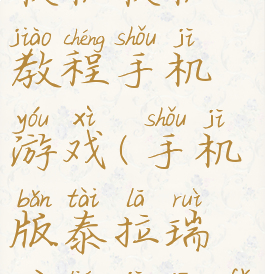 jiào chéng shǒu jī
教程手机
yóu xì shǒu jī
游戏(手机
bǎn tài lā ruì
版泰拉瑞